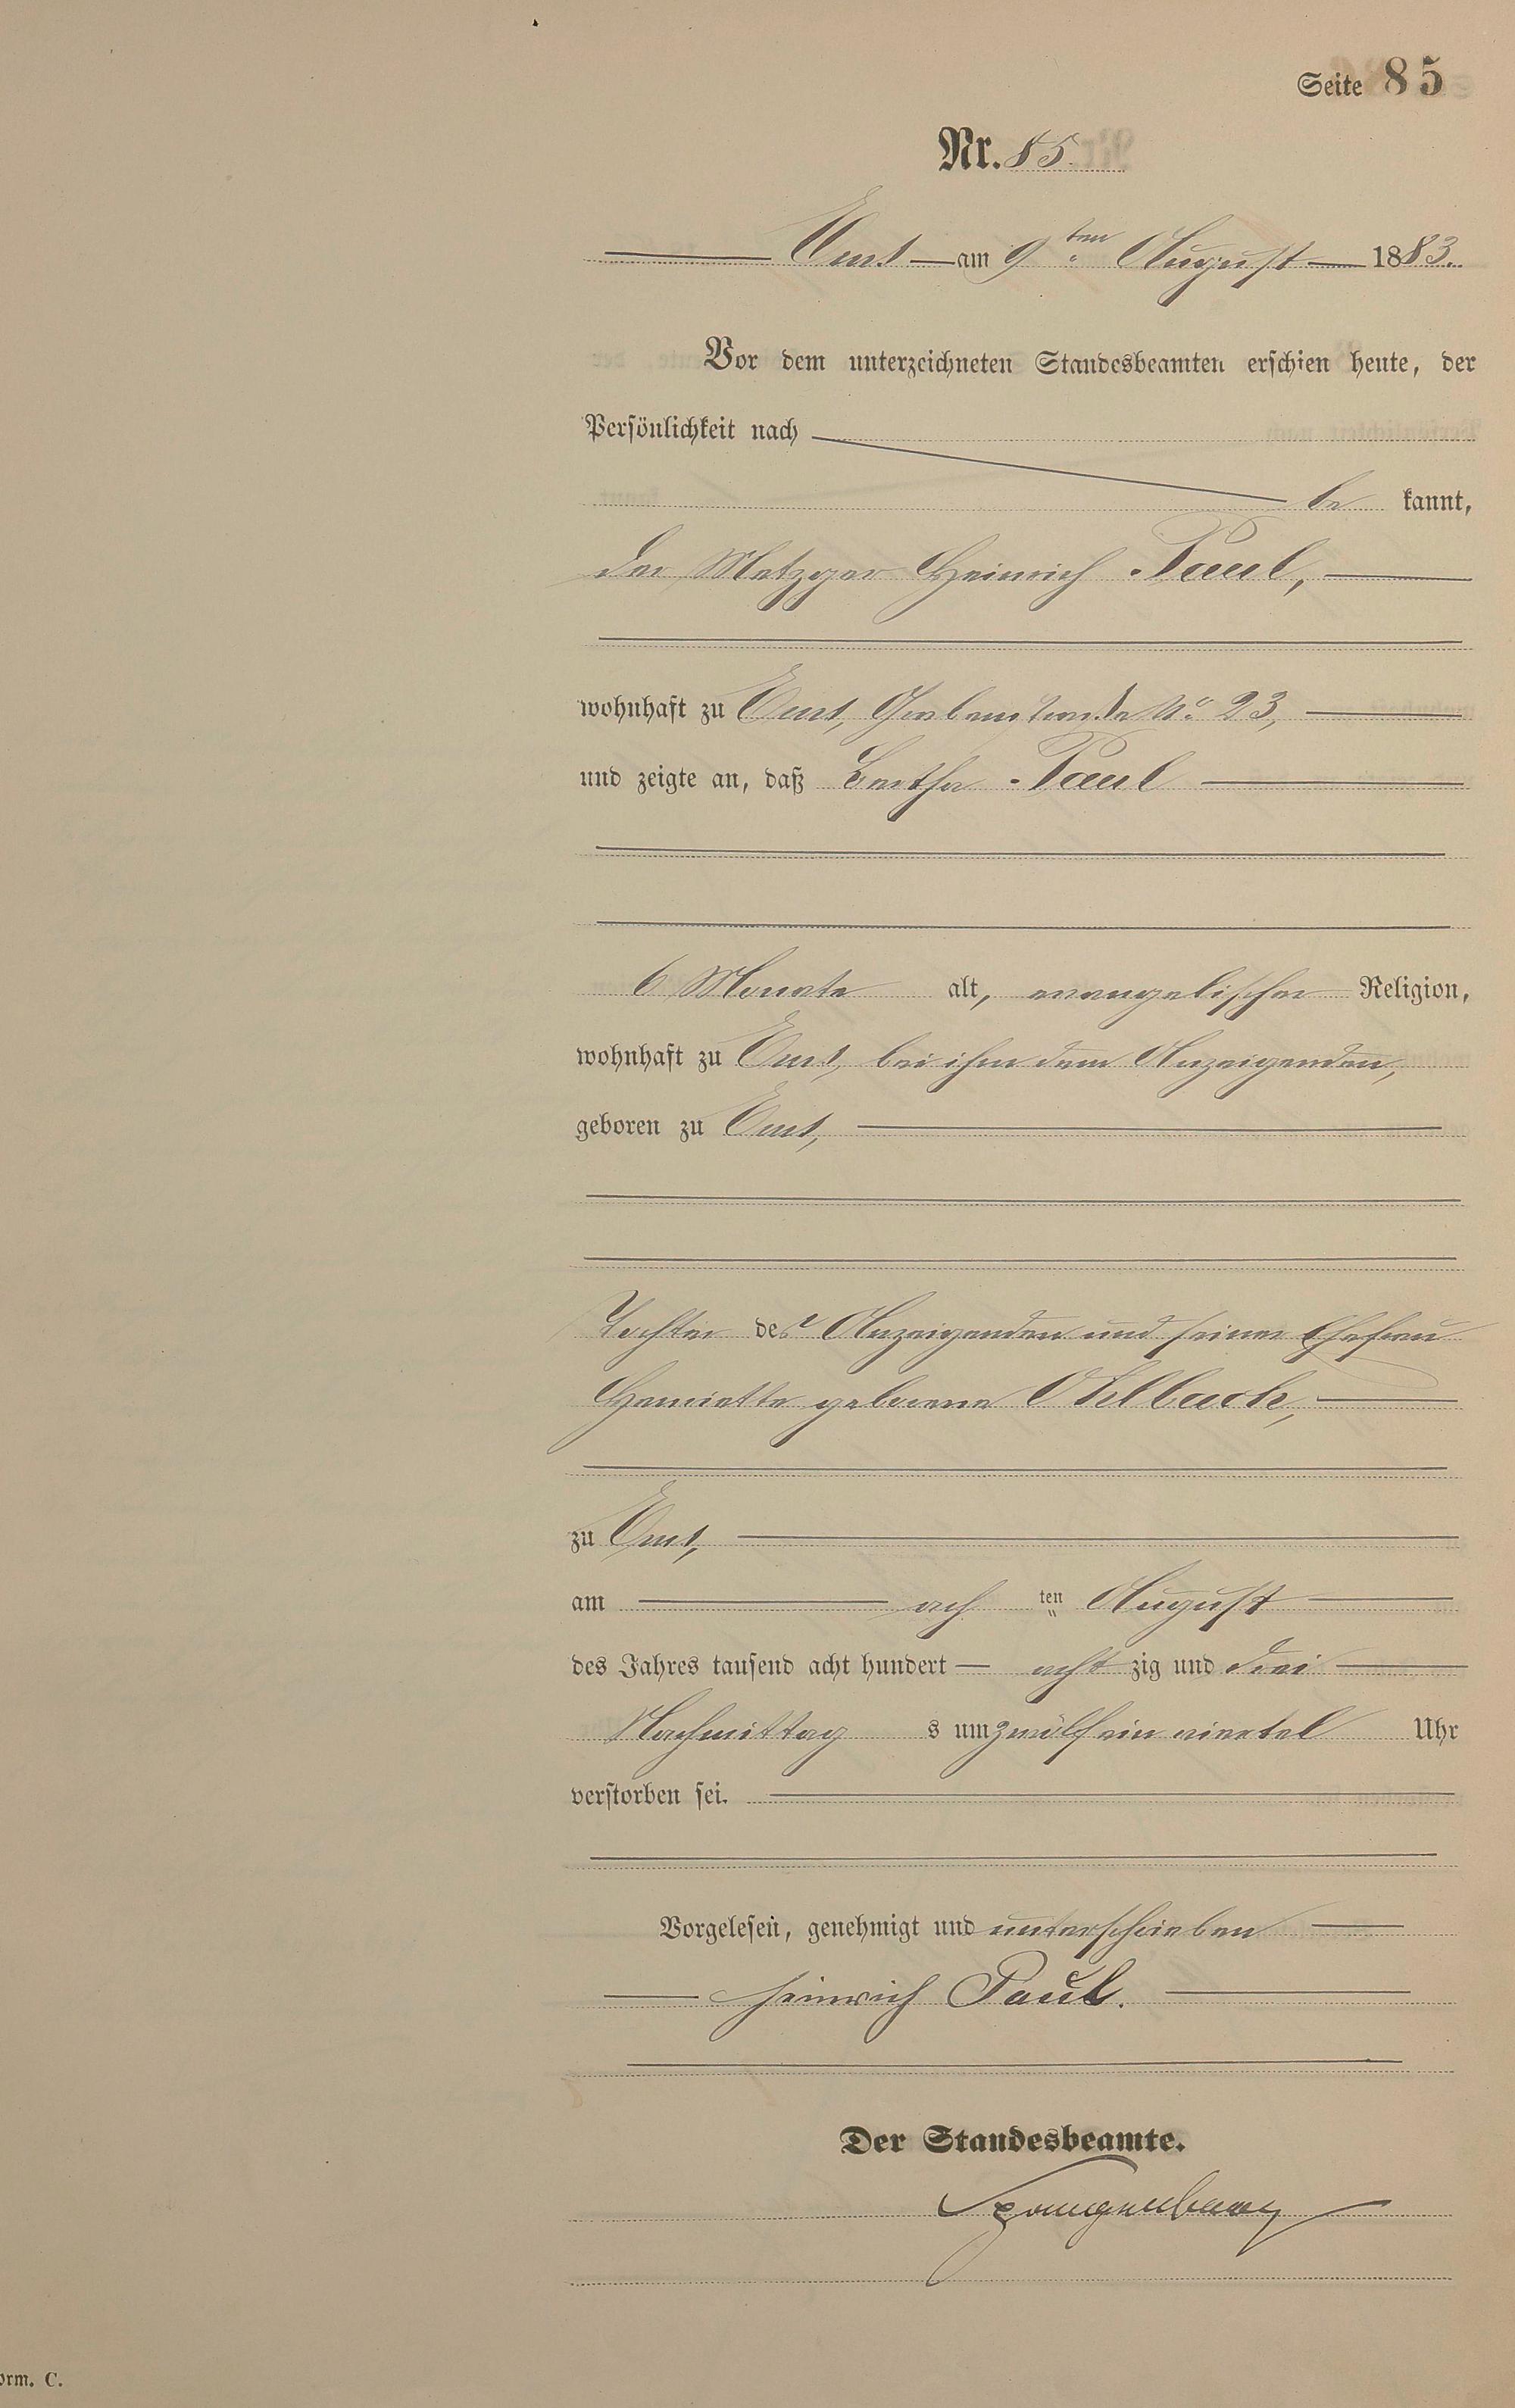 Seite 85
Nr. 85.
Ems am 9ten August 1883.
Vor dem unterzeichneten Standesbeamten erschien heute, der
Persönlichkeit nach
be kannt,
der Metzger Heinrich Paul,
wohnhaft zu Ems, Grabenstraße No. 23,
und zeigte an, daß Bertha Paul
6 Monate alt, evangelischer Religion,
wohnhaft zu Ems, bei ihm dem Anzeigenden,
geboren zu Ems,
Tochter des Anzeigenden und seiner Ehefrau
Henriette geborene Ohlbach,
zu Ems,
am ach ten August
des Jahres tausend acht hundert acht zig und drei
Nachmittag s um zwölf ein viertel Uhr
verstorben sei.
Vorgelesen, genehmigt und unterschrieben
Heinrich Paul.
Der Standesbeamte.
Spangenberg
orm. C.